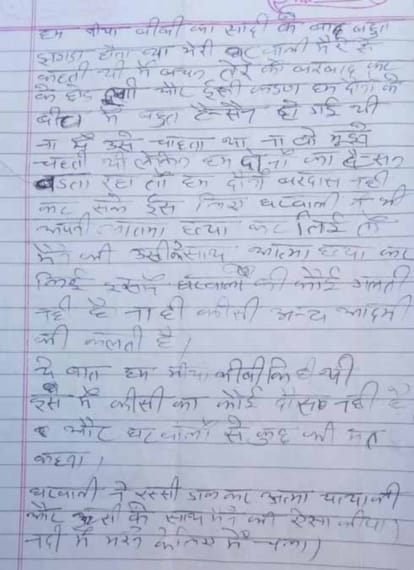 हम मीया बीबी का सादी के बाद बहुत
झगडा होता था मेरी घर वाली मेरे से
कहती थी मैं बचन तेरे को बरबाद कर
के छोड़ और इसी कारण हम दोनो के
बीच में बहुत टेन्सन हो गई थी
ना मैं उसे चाहता था ना वो मुझे
चहती थी लेकिन हम दोनो का टेन्सन
बडता रहा तो हम दोनो बरदास नही
कर सके इस लिए घरवाली ने भी
अपनी आतमा हत्या कर लिई तो
मैंने भी उसी के साथ आत्मा हत्या कर
लिई इसमें घरवालो की कोई गलती
नही है ना ही कीसी अन्य आदमी
की गलती है।
ये बात हम मीया बीबी कि ही थी
इसे में कीसी का कोई दोस नही है
और घर वालो से कुछ भी मत
कहना।
घरवाली ने रस्सी डालकर आत्मा
और उसी के साथ मैंने भी ऐसा कीया।
नदी में मरने के लिए मैं चला।